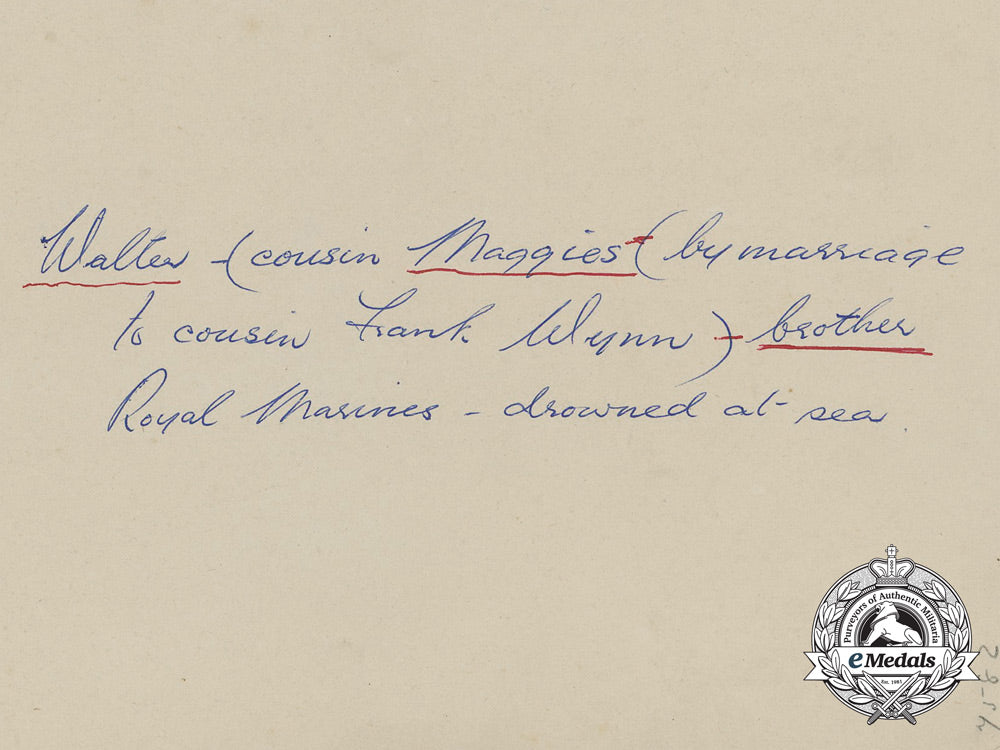 Walter - (cousin Maggies (by marriage
to cousin Frank Wynn) - brother
Royal Marines - drowned at sea.
Purveyors of Authentic Militaria
eMedals
Est. 1981